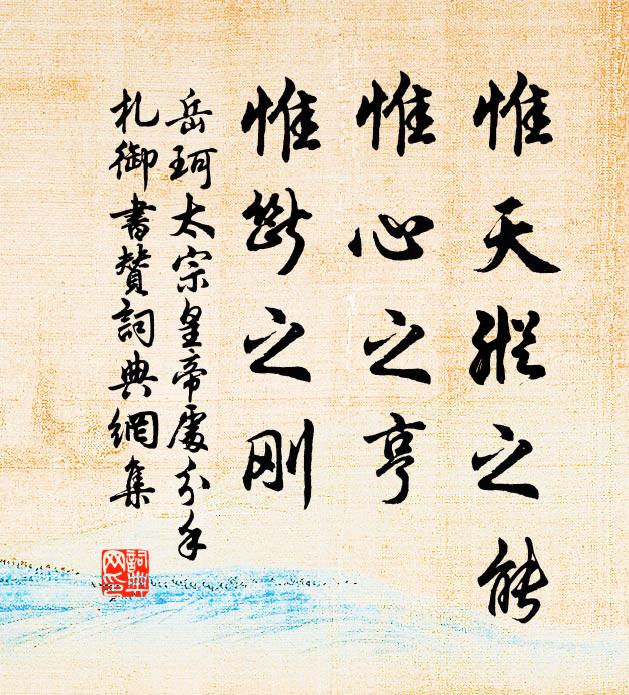 惟天縱之能
惟心之亨
惟斷之刚
岳珂太宗皇帝處分手
札御書贊詞典網集